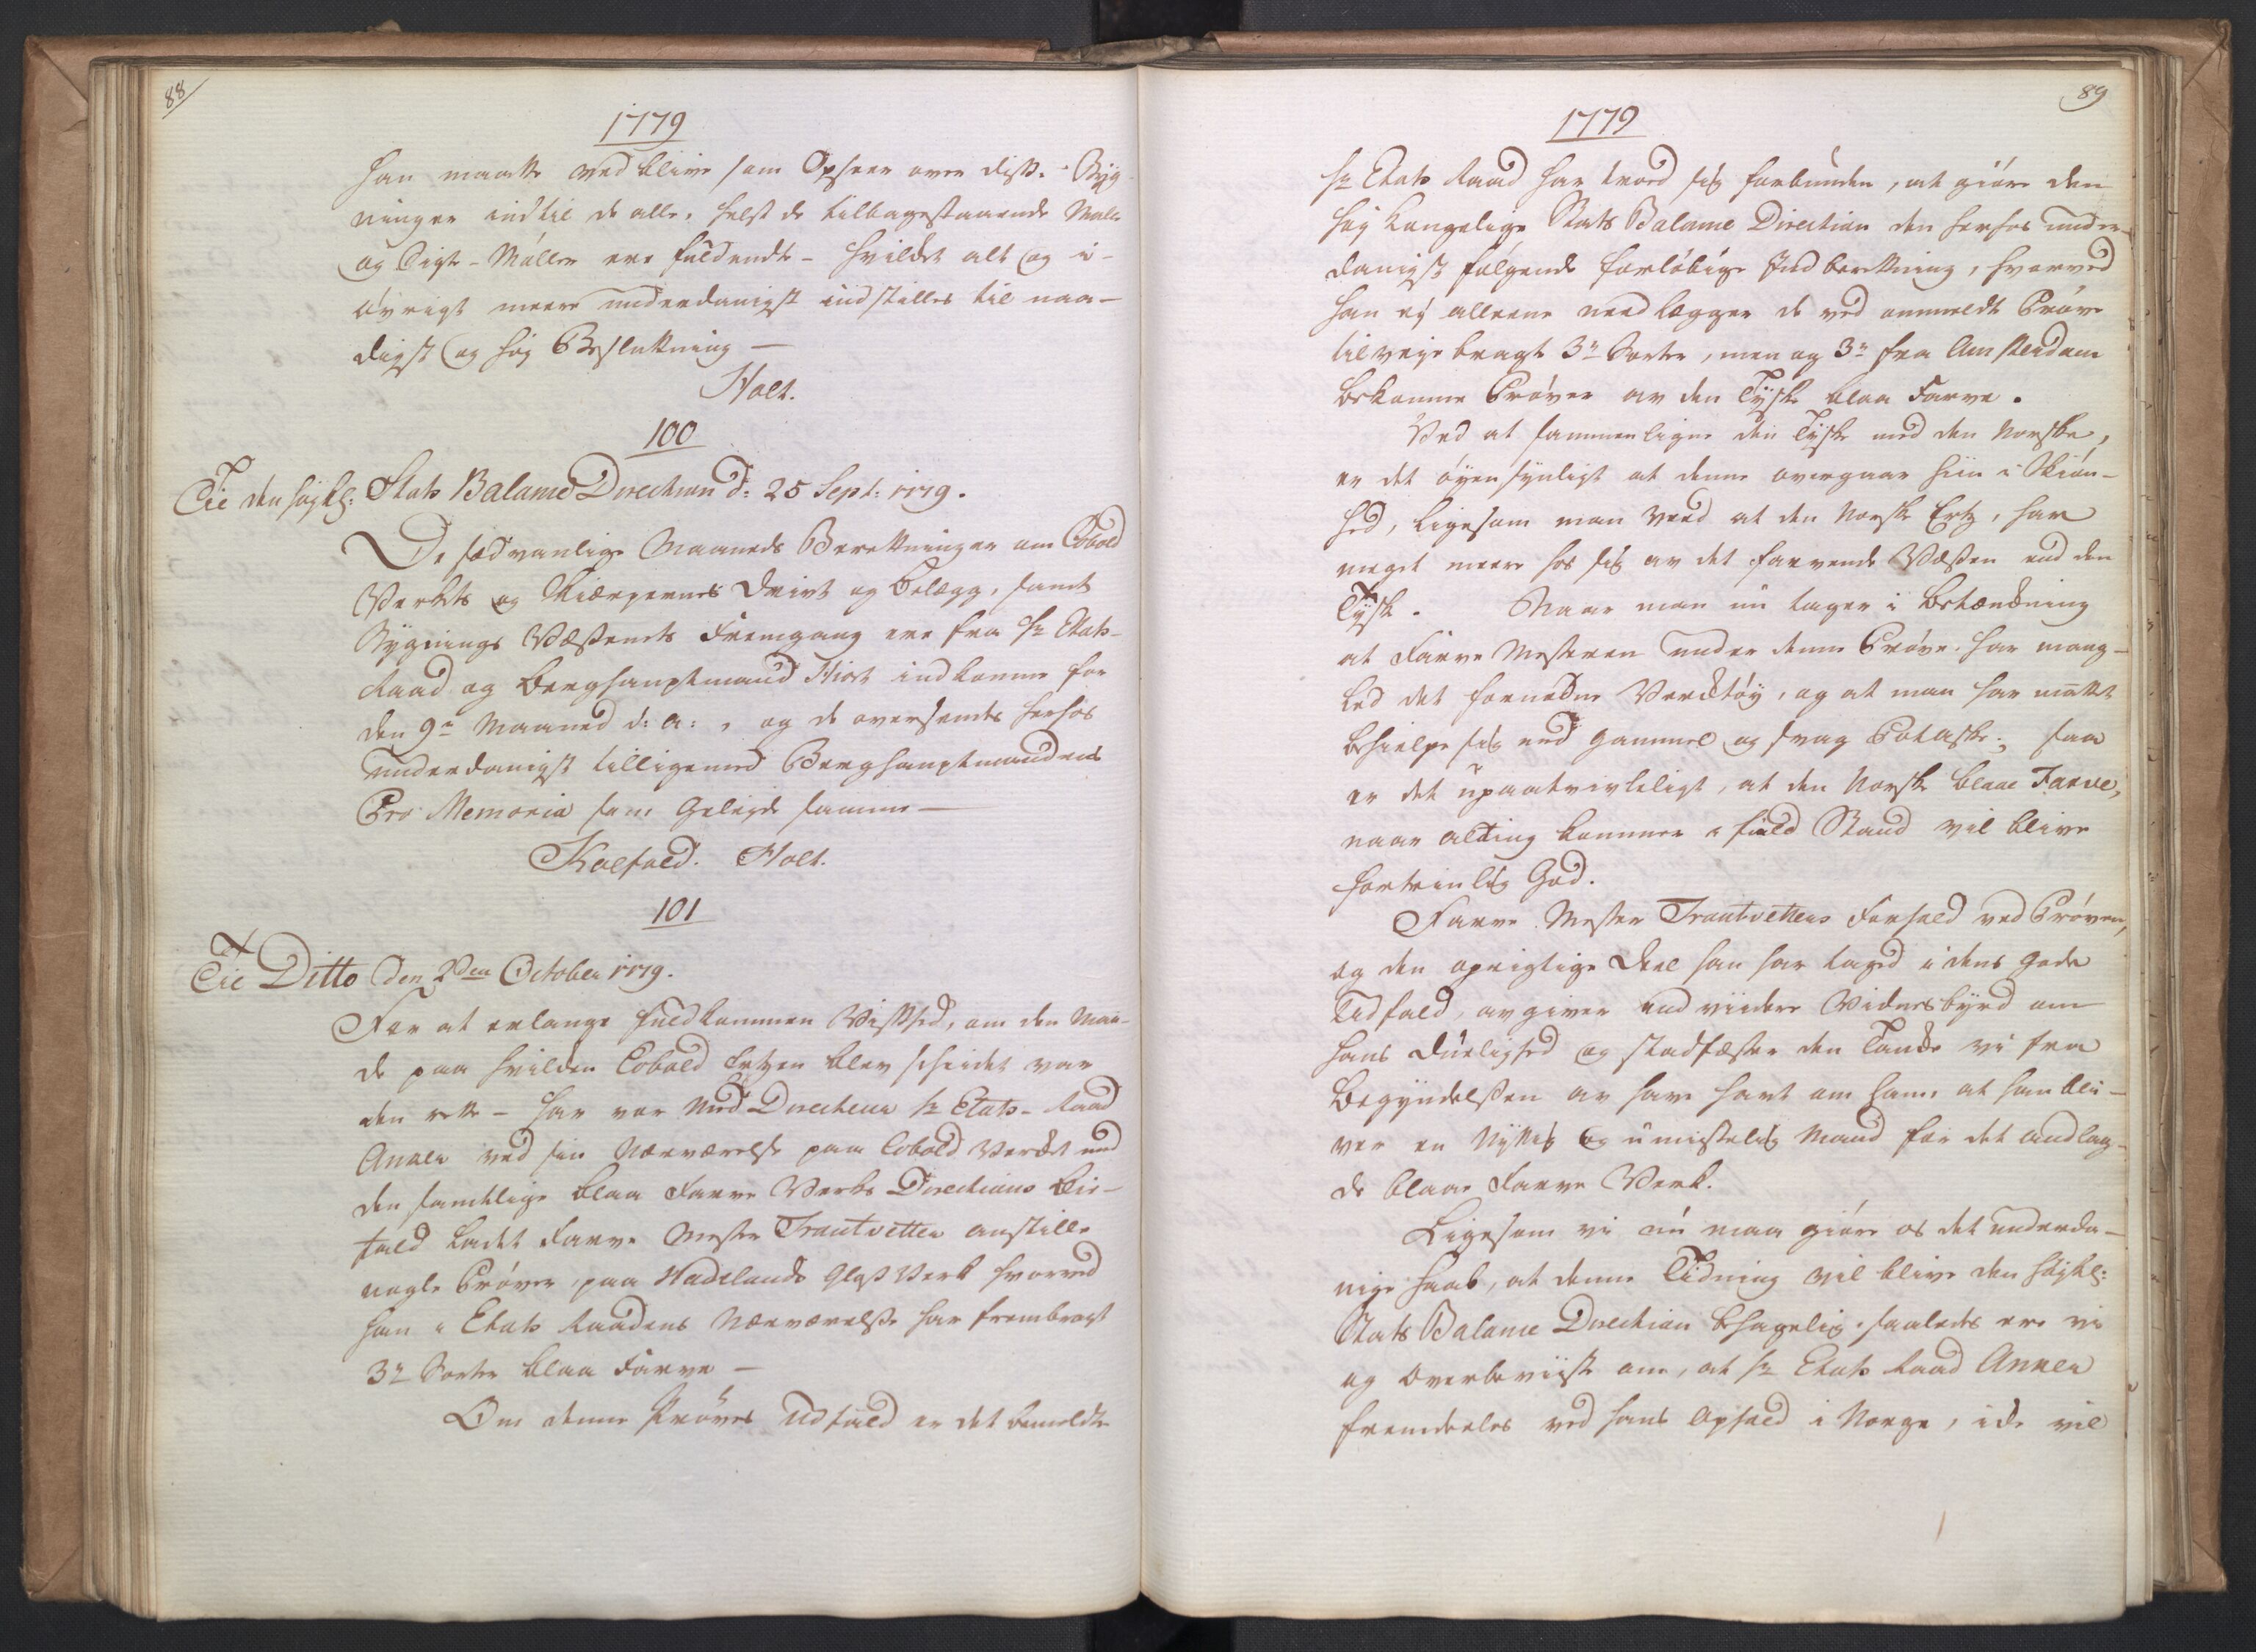 88
1779
han maatte ved blive som Opseer over disse Byg-
ninger indtil de alle, helst de tilbagestaaende Male
og Sigte-Møller ere fuldendte - hvilcket alt og i-
øvrigt meere underdanigst indstilles til naa-
digst og høy Beslutning —
Holt.
100
Til den høykl: Stats Balance Direction d: 25 Sept: 1779.
De sædvanlige Maaneds Beretninger om Cobold
Verkets og Skiærpernes Drivt og Belægg, samt
Bygnings Væssenets Fremgang ere fra Hr Etats-
Raad og Berghauptmand Hiort indkomne for
den 9de Maaned d: a: , og de oversendes herhos
underdanigst tilligemed Berghauptmandens
Pro Memoria som geleyde samme —
Kolfald. Holt.
101
Til Ditto den 2den October 1779.
For at erlange fuldkommen Vished, om den Maa-
de paa hvilcken Cobold Ertzen blev scheidet var
den rette - har vor Med Directeur Hr Etats-Raad
Ancker ved sin Nærværelse paa Cobold Verket med
den samtlige blaa Farve Verks Directions Bie-
fald ladet Farve Mester Trautvetter anstille
nogle Prøver paa Hadelands Glas Verk hvorved
han i Etats Raadens Nærværelse har frembragt
3de Sorter blaa Farve —
Om denne Prøves udfald er det bemeldte
89
1779
Hr Etats Raad har troed sig forbunden, at giøre den
høy Kongelige Stats Balance Direction den herhos under-
danigst følgende forløbige Indberetning, hvorved
han ej alleene needlægger de ved anmeldte Prøve
tilveyebragte 3de Sorter, men og 3de fra Amsterdam
bekomne Prøver av den Tyske blaa Farve.
Ved at sammenligne den Tyske med den Norske,
er det øyensynligt at denne overgaar hiin i Skiøn-
hed, ligesom man veed at den Norske Ertz, har
meget meere hos sig av det farvende Væssen end den
Tyske. Naar man nu tager i betænkning
at Farve Mesteren under denne Prøve har mang-
led det fornødne Vercktøy, og at man har mottet
behielpe sig med gammel og svag Potaske; saa
er det upaatvivleligt, at den Norske blaae Farve,
naar alting kommer i fuld Stand vil blive
fortrinlig God.
Farve Mester Trautvetters Forhold ved Prøven,
og den oprigtige Deel han har taged i dens gode
Udfald, avgiver end viidere Vidnesbyrd om
hans Duelighed og stadfæster den Tanke vi fra
Begyndelssen av have havt om ham, at han bli-
ver en Nyttig og umistelig Mand for det anlag-
de blaae Farve Verk.
Ligesom vi nu maa giøre os det underda-
nige Haab, at denne Tidning vil blive den høykl:
Stats Balance Direction behagelig, saaledes ere vi
og overbeviiste om, at Hr Etats Raad Ancker
fremdeeles ved hans Ophold i Norge, icke vil